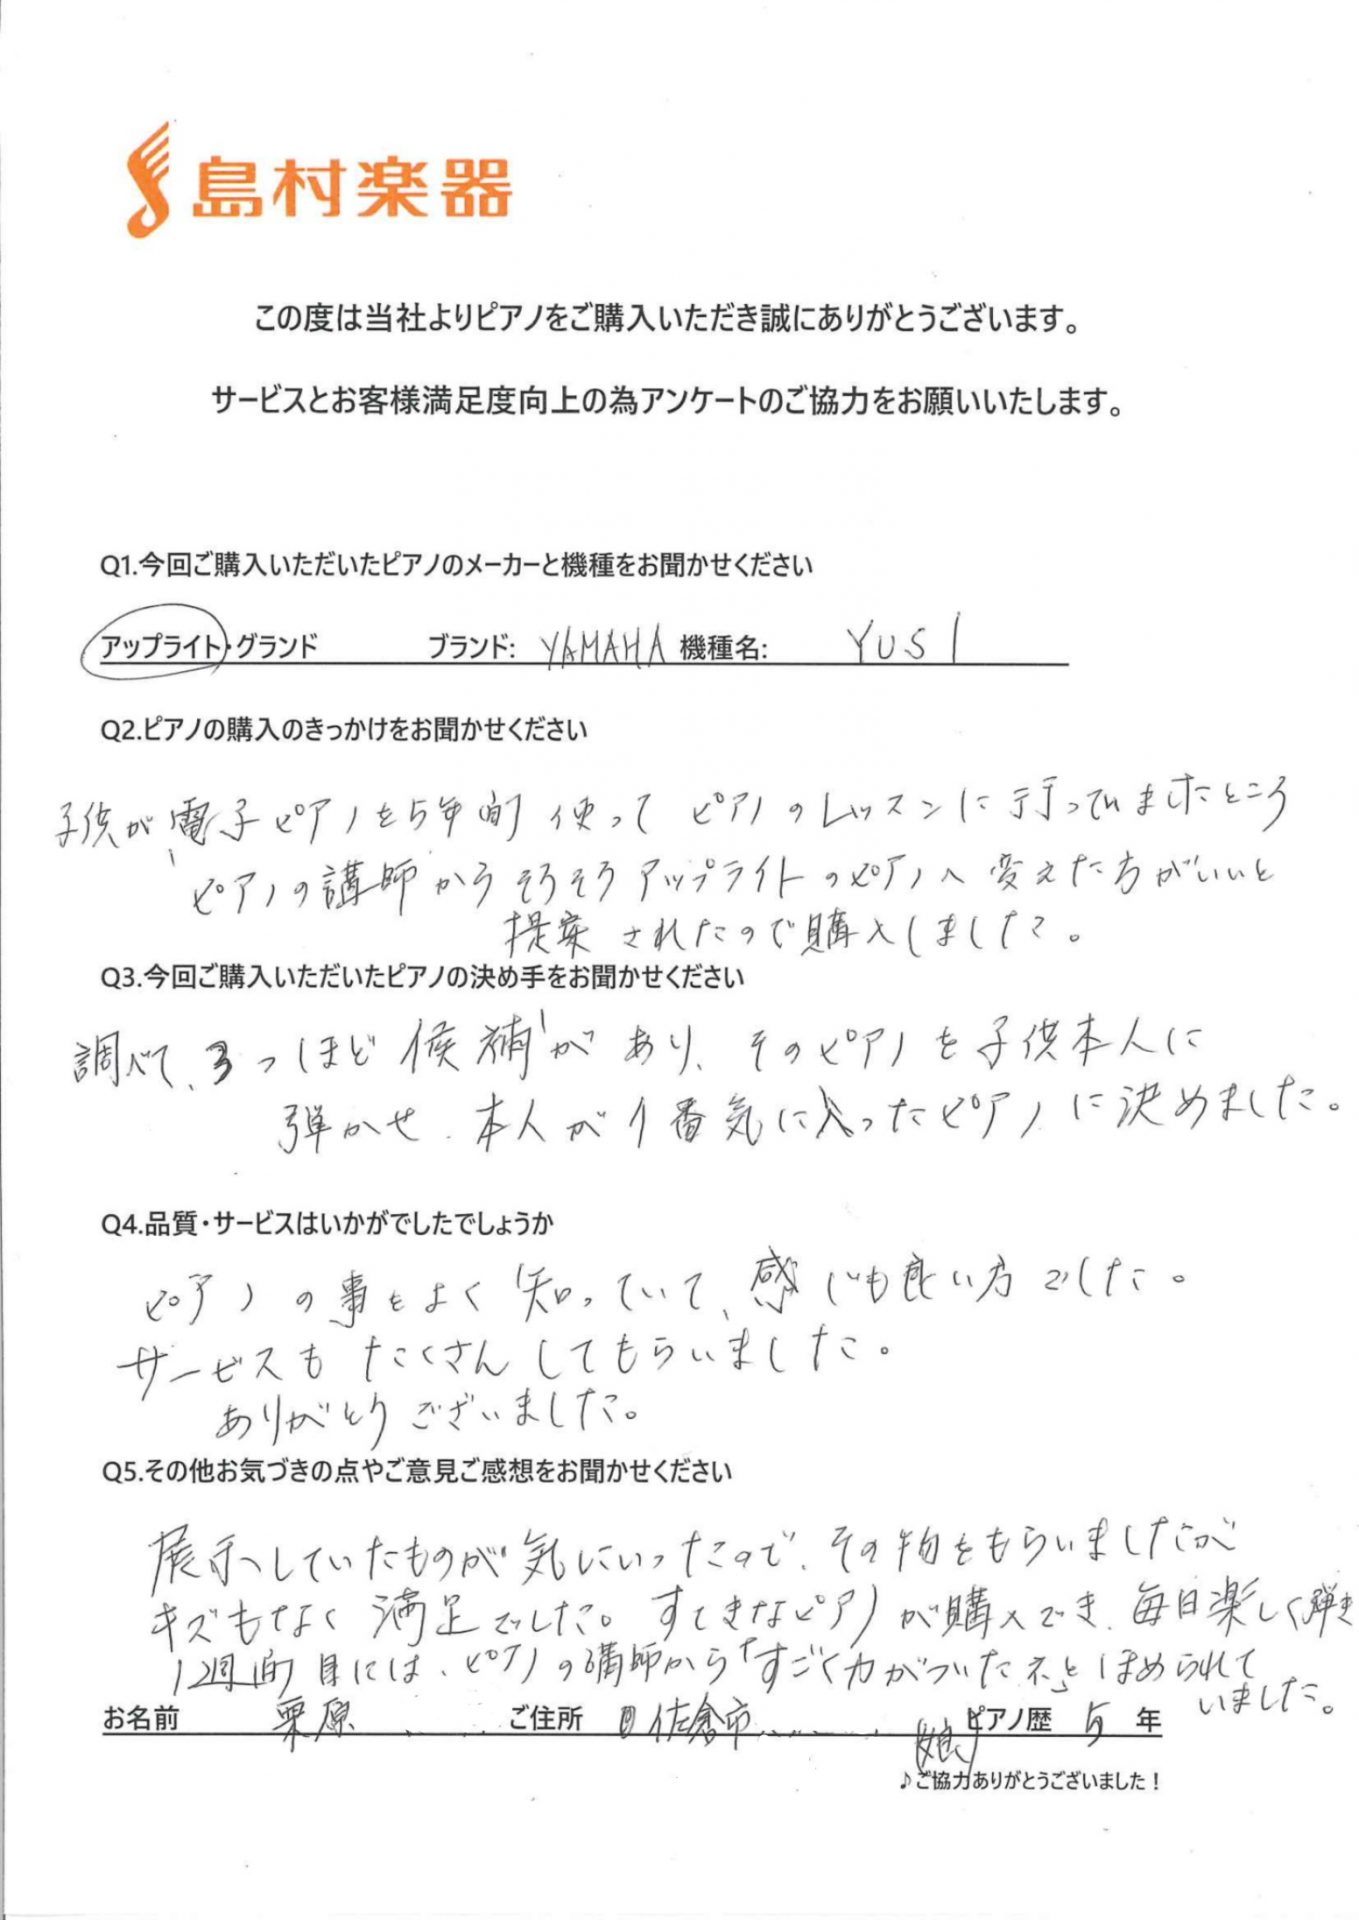 島村楽器
この度は当社よりピアノをご購入いただき誠にありがとうございます。
サービスとお客様満足度向上の為アンケートのご協力をお願いいたします。
Q1.今回ご購入いただいたピアノのメーカーと機種をお聞かせください
アップライト・グランド ブランド: YAMAHA 機種名: YUS1
Q2.ピアノの購入のきっかけをお聞かせください
子供が電子ピアノを5年間使ってピアノのレッスンに行っていましたところ
ピアノの講師からそろそろアップライトのピアノへ変えた方がいいと
提案されたので購入しました。
Q3.今回ご購入いただいたピアノの決め手をお聞かせください
調べて、3つほど候補があり、そのピアノを子供本人に
弾かせ、本人が1番気に入ったピアノに決めました。
Q4.品質・サービスはいかがでしたでしょうか
ピアノの事をよく知っていて、感じも良い方でした。
サービスもたくさんしてもらいました。
ありがとうございました。
Q5.その他お気づきの点やご意見ご感想をお聞かせください
展示していたものが気にいったので、その物をもらいましたが
キズもなく満足でした。すてきなピアノが購入でき、毎日楽しく弾き
1週間目には、ピアノの講師から「すごく力がついたネ」とほめられて
いました。
お名前 栗原 ご住所 佐倉市 (娘) ピアノ歴 5 年
♪ご協力ありがとうございました！